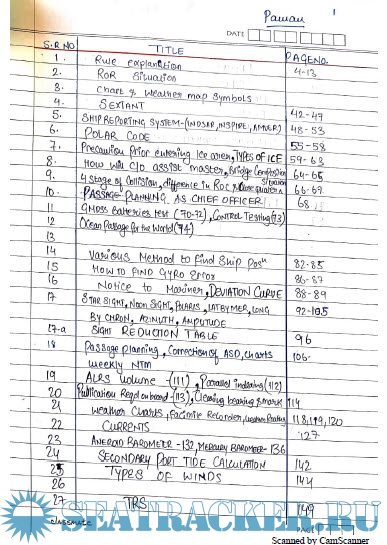 Pawan 1
DATE
S.R NO TITLE PAGENO.
1. Rule explanation 4-13
2. ROR Situation
3. Chart & weather map symbols
4. SEXTANT
5. SHIP REPORTING SYSTEM-(INDSAR, INSPIRE, AMVER) 42-47
6. POLAR CODE 48-53
7. Precaution Prior entering Ice area, TYPES OF ICE 55-58
8. How will C/O assist master, Bridge Composition 59-63
9. 4 stage of Collision, difference in ROC & Close quarters situation 64-65
10. PASSAGE PLANNING AS CHIEF OFFICER 66-67
11 GMDSS Batteries test (70-72), Control Testing (73) 68
12 Ocean Passage for the World (74)
13
14 Various Method to find Ship Posn 82-85
15 HOW TO FIND GYRO Error 86-87
16 Notice to Mariner, DEVIATION CURVE 88-89
17 STAR SIGHT, NOON SIGHT, POLARIS, LAT BY MER, LONG 92-105
BY CHRON, AZIMUTH, AMPLITUDE
17-a SIGHT REDUCTION TABLE 96
18 Passage planning, Correction of ASD, charts 106-
weekly NTM
19 ALRS Volume -(111), Parallel indexing (112)
20 Publication Reqd on board-(113), Clearing bearing & mark 114
21 Weather Charts, Facsimile Recorder, weather Routing 118,119,120
22 CURRENTS 127
23 ANEROID BAROMETER -132, MERCURY BAROMETER-136
24 SECONDARY PORT TIDE CALCULATION 142
25 TYPES OF WINDS 144
26
27 TRS 149
classmate PAGE
SEATRACKER.RU
Scanned by CamScanner